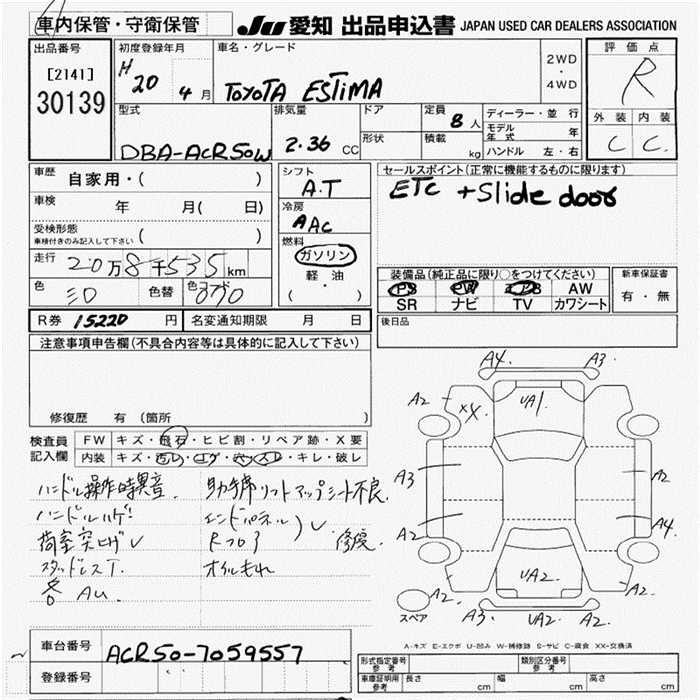 車内保管・守衛保管
JU 愛知 出品申込書 JAPAN USED CAR DEALERS ASSOCIATION
出品番号
[2141]
30139
初度登録年月
H20 4月
車名・グレード
TOYOTA ESTIMA
2WD
・
4WD
評価点
R
外装 内装
C C
型式
DBA-ACR50W
排気量
2.36 CC
ドア
形状
定員
8人
積載
kg
ディーラー・並行
モデル年式 年
ハンドル 左・右
車歴
自家用・( )
車検 年 月( 日)
受検形態
車検付きのみ記入して下さい ( )
走行 20万8千535km
色 色替 色コード 070
シフト
A.T
冷房
AAC
燃料
ガソリン
軽油
( ・ )
セールスポイント(正常に機能するものに限ります)
ETC +Slide door
装備品(純正品に限り○をつけてください)
PS PW AW
SR ナビ TV カワシート
新車保証書
有・無
R券 15220 円 名変通知期限 月 日
後日品
注意事項申告欄(不具合内容等は具体的に記入して下さい)
修復歴 有(箇所 )
検査員
記入欄
FW キズ・飛石・ヒビ割・リペア跡・X要
内装 キズ・汚レ・コゲ・ ・キレ・破レ
ハンドル操作時異音
ハンドルハゲ
荷室突上ゲレ
スタッドレスT.
各AU.
助手席リフトアップシート不良
エンドパネル
Rフロア
修復
オイルもれ
A4 A3
A2 XX UA1 A2
A3 A2
A2 A4
A2 UA2 A2
スペア A3 UA2 A2
A-キズ E-エクボ U-凹み W-補修跡 S-サビ C-腐食 XX-交換済
車台番号 ACR50-7059557
登録番号
形式指定番号 参考
類別区分番号 参考
車庫証明用 参考 長さ cm 幅 cm 高さ cm